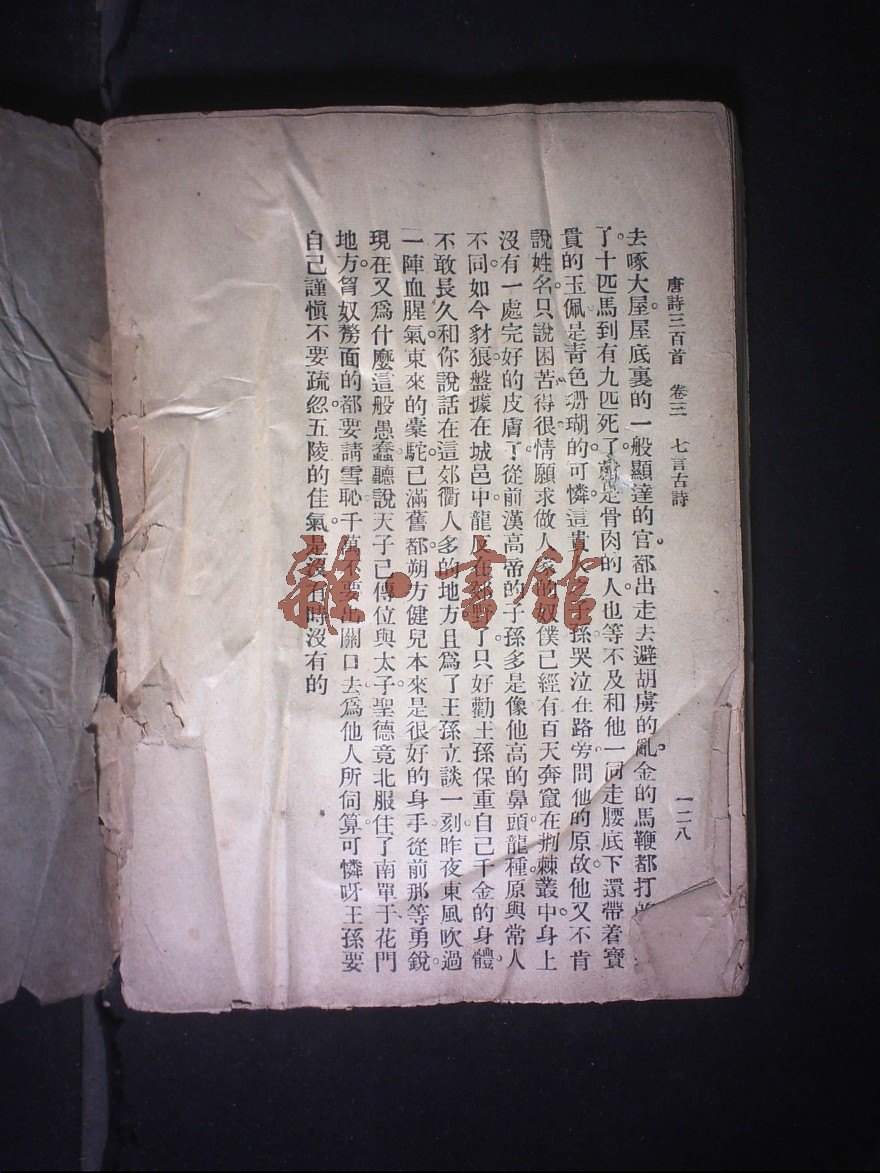 唐詩三百首 卷三 七言古詩 一二八
去啄大屋。屋底裏的一般顯達的官。都出走去避胡虜的亂。金的馬鞭都打
了。十匹馬到有九匹死了。就是骨肉的人也等不及和他一同走。腰底下還帶着寶
貴的玉佩。是青色珊瑚的。可憐這貴 子孫哭泣在路旁。問他的原故。他又不肯
說姓名。只說困苦得很。情願求做人家的奴僕。已經有百天奔竄在荆棘叢中。身上
沒有一處完好的皮膚了。從前漢高帝的子孫。多是像他高的鼻頭。龍種原與常人
不同。如今豺狼盤據在城邑中。龍反在 野了。只好勸王孫保重自己千金的身體。
不敢長久和你說話在這郊衢人多的地方。且爲了王孫立談一刻。昨夜東風吹過
一陣血腥氣。東來的橐駝已滿舊都。朔方健兒本來是很好的身手。從前那等勇銳。
現在又爲什麼這般愚蠢。聽說天子已傳位與太子。聖德竟北服住了南單于。花門
地方。剺面的都要請雪恥。千萬不要出關口去。爲他人所伺算。可憐呀王孫。要
自己謹愼不要疏忽。五陵的佳氣。是沒有時沒有的
雜·書館